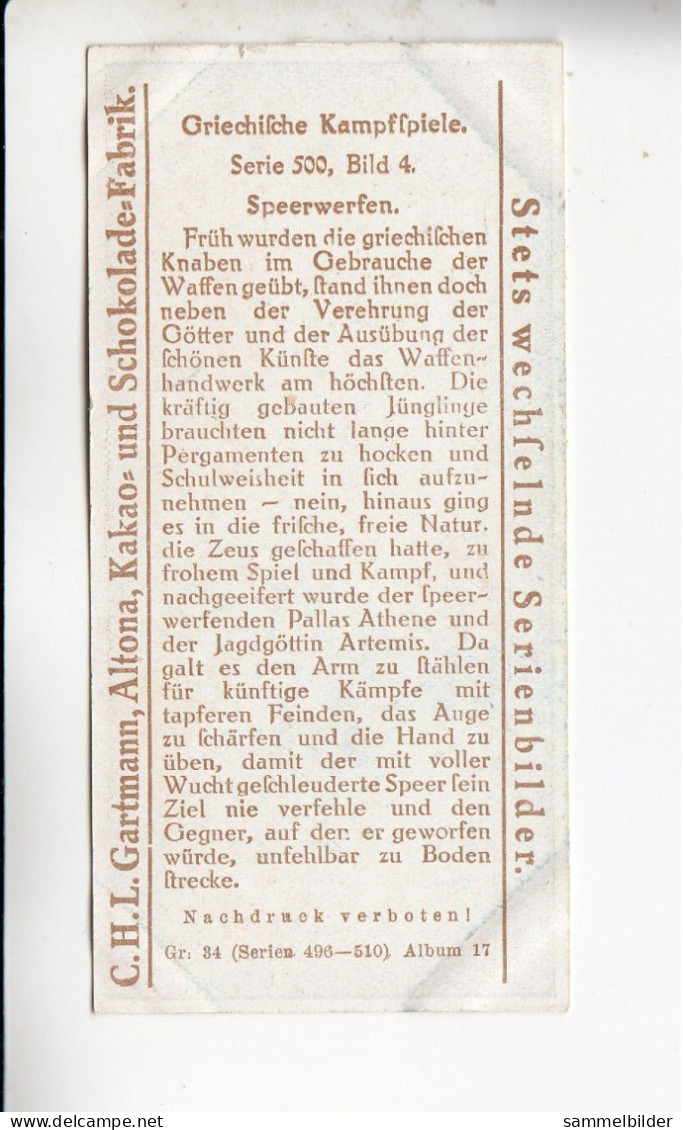 C.H.L. Gartmann, Altona, Kakao= und Schokolade=Fabrik.
Griechiſche Kampfſpiele.
Serie 500, Bild 4.
Speerwerfen.
Früh wurden die griechiſchen
Knaben im Gebrauche der
Waffen geübt, ſtand ihnen doch
neben der Verehrung der
Götter und der Ausübung der
ſchönen Künſte das Waffen-
handwerk am höchſten. Die
kräftig gebauten Jünglinge
brauchten nicht lange hinter
Pergamenten zu hocken und
Schulweisheit in ſich aufzu-
nehmen – nein, hinaus ging
es in die friſche, freie Natur,
die Zeus geſchaffen hatte, zu
frohem Spiel und Kampf, und
nachgeeifert wurde der ſpeer-
werfenden Pallas Athene und
der Jagdgöttin Artemis. Da
galt es den Arm zu ſtählen
für künftige Kämpfe mit
tapferen Feinden, das Auge
zu ſchärfen und die Hand zu
üben, damit der mit voller
Wucht geſchleuderte Speer ſein
Ziel nie verfehle und den
Gegner, auf den er geworfen
würde, unfehlbar zu Boden
ſtrecke.
Nachdruck verboten!
Gr. 34 (Serien 496—510) Album 17
Stets wechſelnde Serienbilder.
delcampe.net
sammelbilder